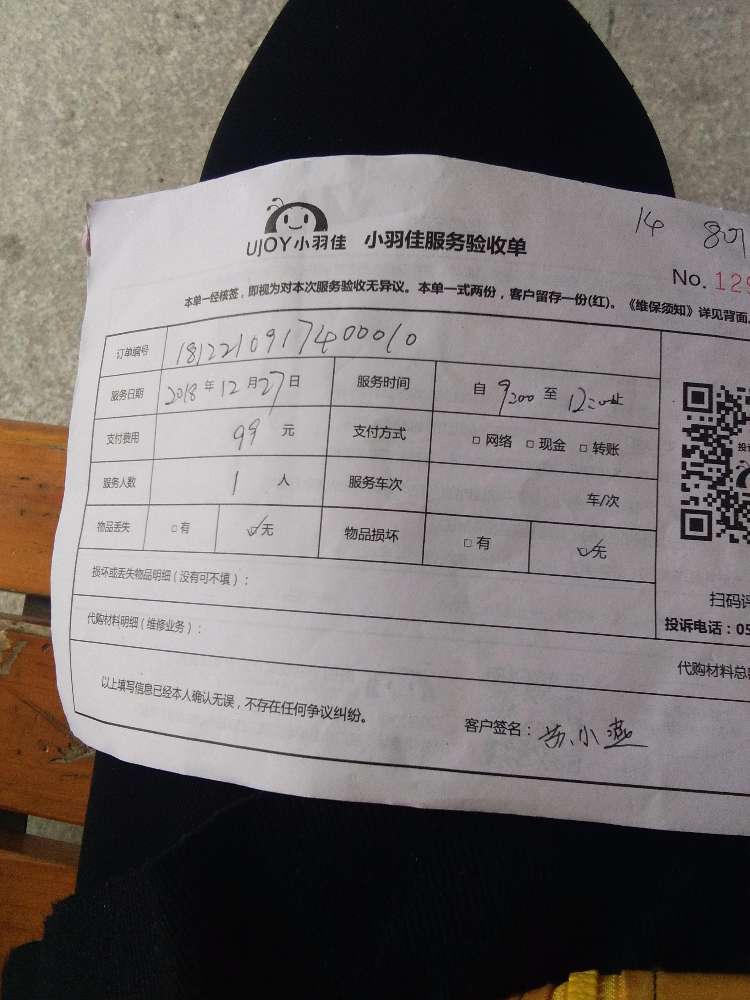 UJOY小羽佳 小羽佳服务验收单
14 801
No. 129
本单一经核签，即视为对本次服务验收无异议。本单一式两份，客户留存一份(红)。《维保须知》详见背面。
订单编号 1812210917400010
服务日期 2018年12月27日 服务时间 自 9:00 至 12:00止
支付费用 99 元 支付方式 □网络 □现金 □转账
服务人数 1 人 服务车次 车/次
物品丢失 □有 ☑无 物品损坏 □有 ☑无
损坏或丢失物品明细（没有可不填）：
扫码评
投诉电话：05
代购材料明细（维修业务）：
代购材料总
以上填写信息已经本人确认无误，不存在任何争议纠纷。
客户签名：苏小燕